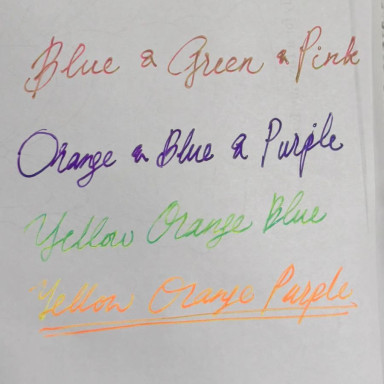 Blue & Green & Pink
Orange & Blue & Purple
Yellow Orange Blue
Yellow Orange Purple